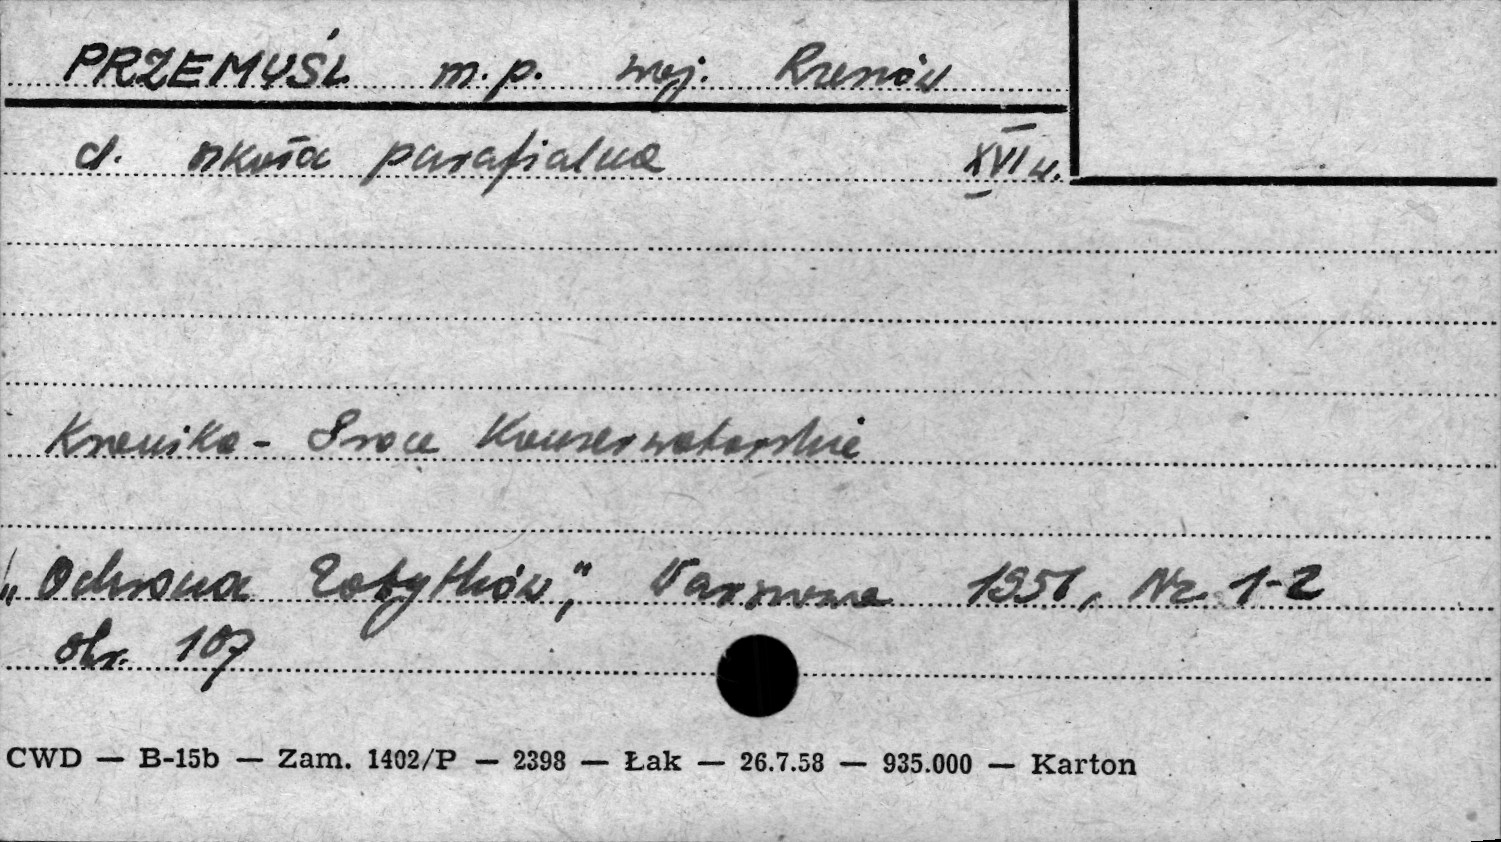 PRZEMYŚL m.p. woj. Rzeszów
d. szkoła parafialna XVI w.
Kronika - Prace Konserwatorskie
„Ochrona Zabytków", Warszawa 1956, Nr. 1-2
str. 107
CWD — B-15b — Zam. 1402/P — 2398 — Łak — 26.7.58 — 935.000 — Karton